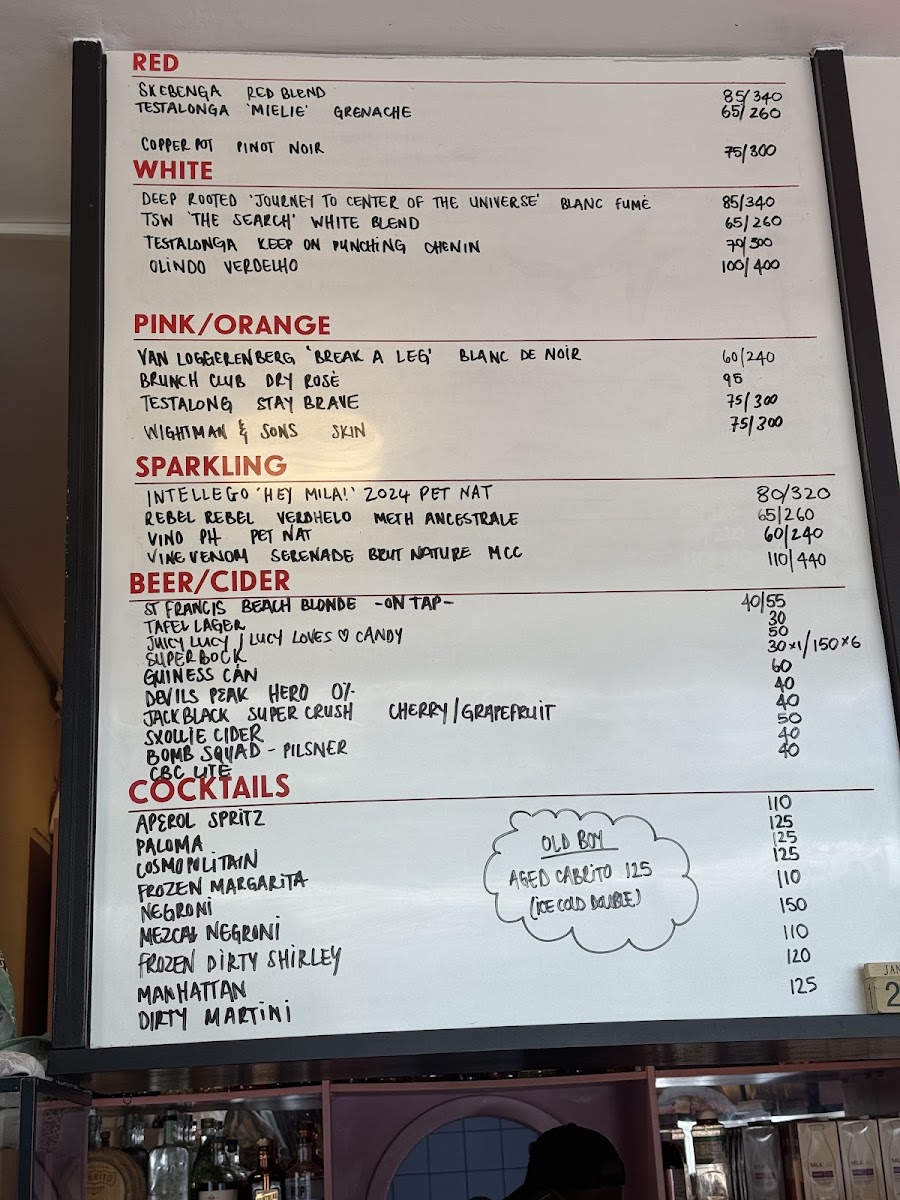 RED
SKEBENGA RED BLEND 85/340
TESTALONGA 'MIELIE' GRENACHE 65/260
COPPER POT PINOT NOIR 75/300
WHITE
DEEP ROOTED 'JOURNEY TO CENTER OF THE UNIVERSE' BLANC FUMÈ 85/340
TSW 'THE SEARCH' WHITE BLEND 65/260
TESTALONGA KEEP ON PUNCHING CHENIN 70/300
OLINDO VERDELHO 100/400
PINK/ORANGE
VAN LOGGERENBERG 'BREAK A LEG' BLANC DE NOIR 60/240
BRUNCH CLUB DRY ROSÈ 95
TESTALONG STAY BRAVE 75/300
WIGHTMAN & SONS SKIN 75/300
SPARKLING
INTELLEGO 'HEY MILA!' 2024 PET NAT 80/320
REBEL REBEL VERDHELO METH ANCESTRALE 65/260
VINO PH PET NAT 60/240
VINE VENOM SERENADE BRUT NATURE MCC 110/440
BEER/CIDER
ST FRANCIS BEACH BLONDE -ON TAP- 40/55
TAFEL LAGER 30
JUICY LUCY / LUCY LOVES ♡ CANDY 50
SUPERBOCK 30×1/150×6
GUINESS CAN 60
DEVILS PEAK HERO 0% 40
JACKBLACK SUPER CRUSH CHERRY/GRAPEFRUIT 40
SXOLLIE CIDER 50
BOMB SQUAD - PILSNER 40
CBC LITE 40
COCKTAILS
APEROL SPRITZ 110
PALOMA 125
COSMOPOLITAIN 125
FROZEN MARGARITA 125
NEGRONI 110
MEZCAL NEGRONI 150
FROZEN DIRTY SHIRLEY 110
MANHATTAN 120
DIRTY MARTINI 125
OLD BOY
AGED CABRITO 125
(ICE COLD DOUBLE)
JAN
2
MILK